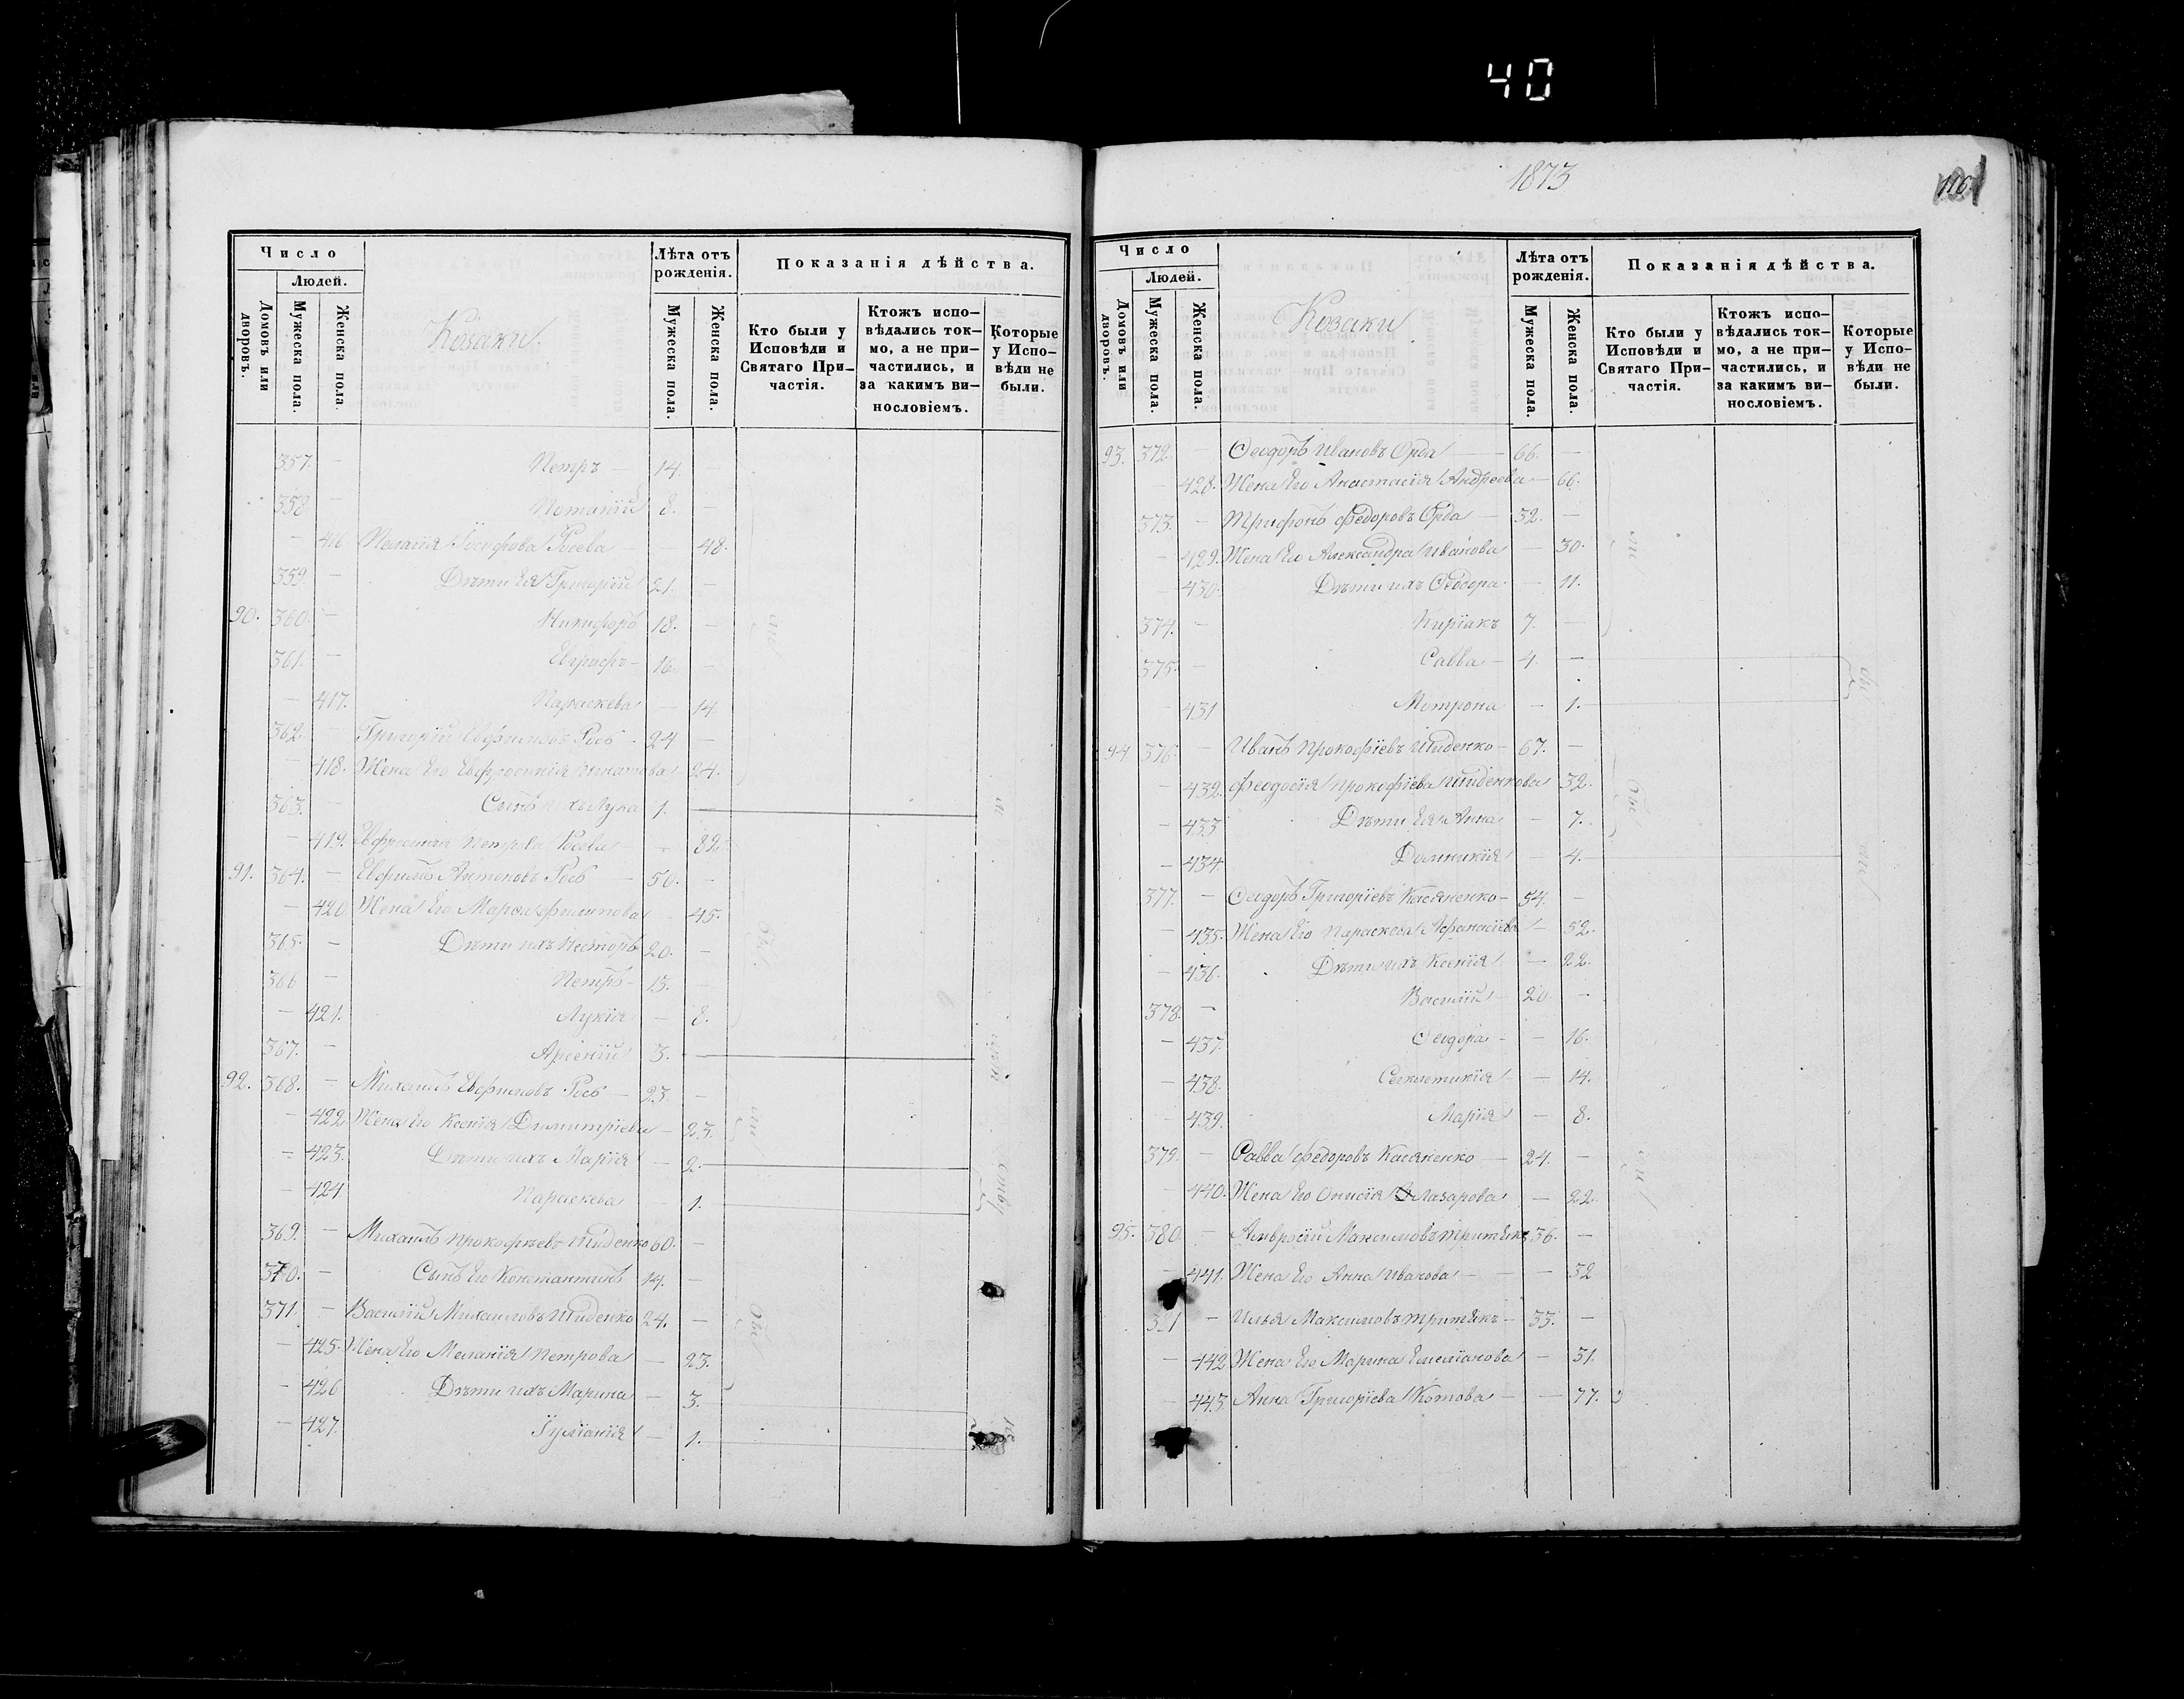 40
Число
Людей.
Домовъ или дворовъ.
Мужеска пола.
Женска пола.
Козаки.
Лѣта отъ рожденія.
Мужеска пола.
Женска пола.
Показанія дѣйства.
Кто были у Исповѣди и Святаго Причастія.
Ктожъ исповѣдались токмо, а не причастились, и за какимъ винословіемъ.
Которые у Исповѣди не были.
357. — Петръ — 14.
358 — Потапій 8. —
— 416 Пелагія Іосифова — — 48.
359. — Дѣти Ея Григорій 21. —
90. 360. — Никифоръ 18. —
361. — Евграфъ — 16. —
— 417. Параскева — 14
362. — Григорій Евфимовъ — 24 —
— 418. Жена Его Евфросинія 24.
363. — Сынъ ихъ Лука 1.
— 419. Петрова — 82.
91. 364. — Евфимъ Антоновъ — 50. —
— 420 Жена Его Марѳа Филиппова 45.
365. — Дѣти ихъ Несторъ 20. —
366 — Петръ — 13. —
— 421. Лукія — 8.
367. — Арсеній 3. —
92. 368. — Михаилъ Евфимовъ — 23. —
— 422 Жена Его Ксенія Димитріева — 23.
— 423. Дѣти ихъ Марія — 2.
— 424 Параскева — 1.
369. — Михаилъ Прокофьевъ Шиденко 60. —
370. — Сынъ Его Константинъ 14. —
371. — Василій Михаиловъ Шиденко 24. —
— 425. Жена Его Меланія Петрова — 23.
— 426 Дѣти ихъ Марина — 3.
— 427. Іуліанія — 1.
1873
Число
Людей.
Домовъ или дворовъ.
Мужеска пола.
Женска пола.
Козаки
Лѣта отъ рожденія.
Мужеска пола.
Женска пола.
Показанія дѣйства.
Кто были у Исповѣди и Святаго Причастія.
Ктожъ исповѣдались токмо, а не причастились, и за какимъ винословіемъ.
Которые у Исповѣди не были.
93. 372. — Ѳеодоръ Ивановъ Орда — 66. —
— 428. Жена Его Анастасія Андреева — 66.
373. — Трифонъ Федоровъ Орда — 32. —
— 429. Жена Его Александра Иванова — 30.
— 430. Дѣти ихъ Ѳеодора — 11.
374. — Киріакъ 7. —
375. — Савва — 4. —
— 431 Мотрона — 1.
94 376. — Иванъ Прокофіевъ Шиденко — 67. —
— 432. Феодосія Прокофіева Шиденкова 32.
— 433 Дѣти Ея Анна — 7.
— 434. Домникія — 4.
377. — Ѳеодоръ Григоріевъ Касяненко — 54. —
— 435. Жена Его Параскева Афанасіева — 52.
— 436. Дѣти ихъ Ксенія — 22.
378. — Василій — 20. —
— 437. Ѳеодора — — 16.
— 438. Секлетикія — 14.
— 439. Марія — 8.
379. — Савва Федоровъ Касяненко — 24. —
— 440. Жена Его Онисія Лазарова — 22.
95. 380. — Амвросій Максимовъ Тритякъ 36. —
— 441. Жена Его Анна Иванова — — 32
— Илья Максимовъ Тритякъ — 33. —
— 442 Жена Его Марина Емеліанова — 31.
— 443. Анна Григоріева Котова — — 77.